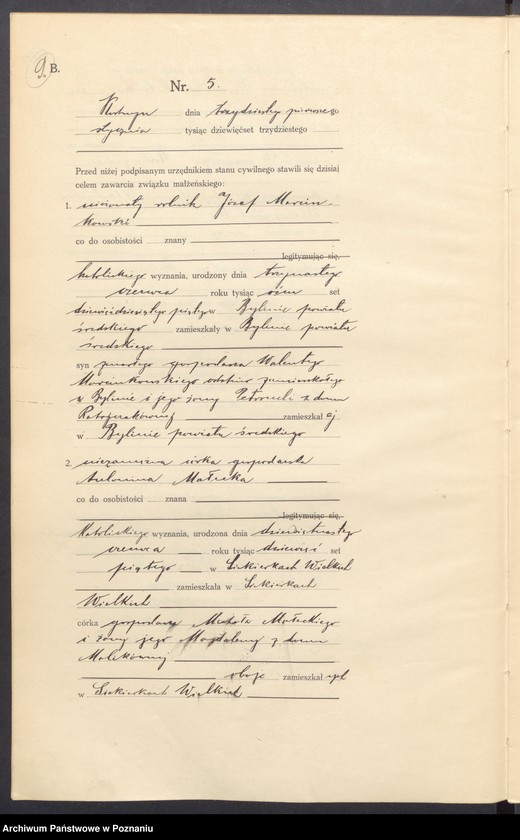 9. B.
Nr. 5.
Kostrzyn dnia trzydziesty pierwszego
stycznia tysiąc dziewięćset trzydziestego
Przed niżej podpisanym urzędnikiem stanu cywilnego stawili się dzisiaj
celem zawarcia związku małżeńskiego:
1. nieżonaty rolnik Józef Marcin-
kowski
co do osobistości znany
legitymując się,
katolickiego wyznania, urodzony dnia trzynastego
czerwca roku tysiąc ośm set
dziewięćdziesiątego piątego w Bylinie powiatu
średzkiego zamieszkały w Bylinie powiatu
średzkiego
syn zmarłego gospodarza Walentego
Marcinkowskiego ostatnio zamieszkałego
w Bylinie i jego żony Petroneli z domu
Ratajczakównej zamieszkał ej
w Bylinie powiatu średzkiego
2. niezamężna córka gospodarza
Antonina Małecka
co do osobistości znana
legitymując się,
Katolickiego wyznania, urodzona dnia dziewiętnastego
czerwca roku tysiąc dziewięć set
piątego w Siekierkach Wielkich
zamieszkała w Siekierkach
Wielkich
córka gospodarza Michała Małeckiego
i żony jego Magdaleny z domu
oboje zamieszkał ych
w Siekierkach Wielkich
Archiwum Państwowe w Poznaniu